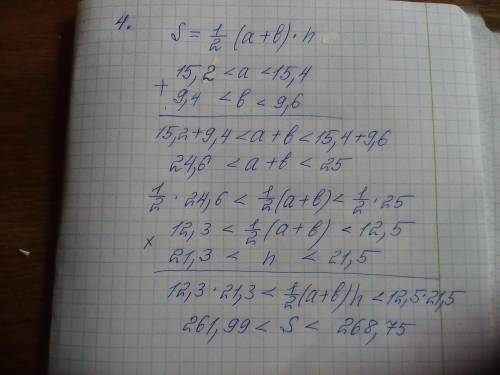 4.
S = 1/2 (a+b)·h
15,2 < a < 15,4
+
9,4 < b < 9,6
15,2+9,4 < a+b < 15,4+9,6
24,6 < a+b < 25
1/2 · 24,6 < 1/2(a+b) < 1/2 · 25
12,3 < 1/2(a+b) < 12,5
×
21,3 < h < 21,5
12,3·21,3 < 1/2(a+b)h < 12,5·21,5
261,99 < S < 268,75